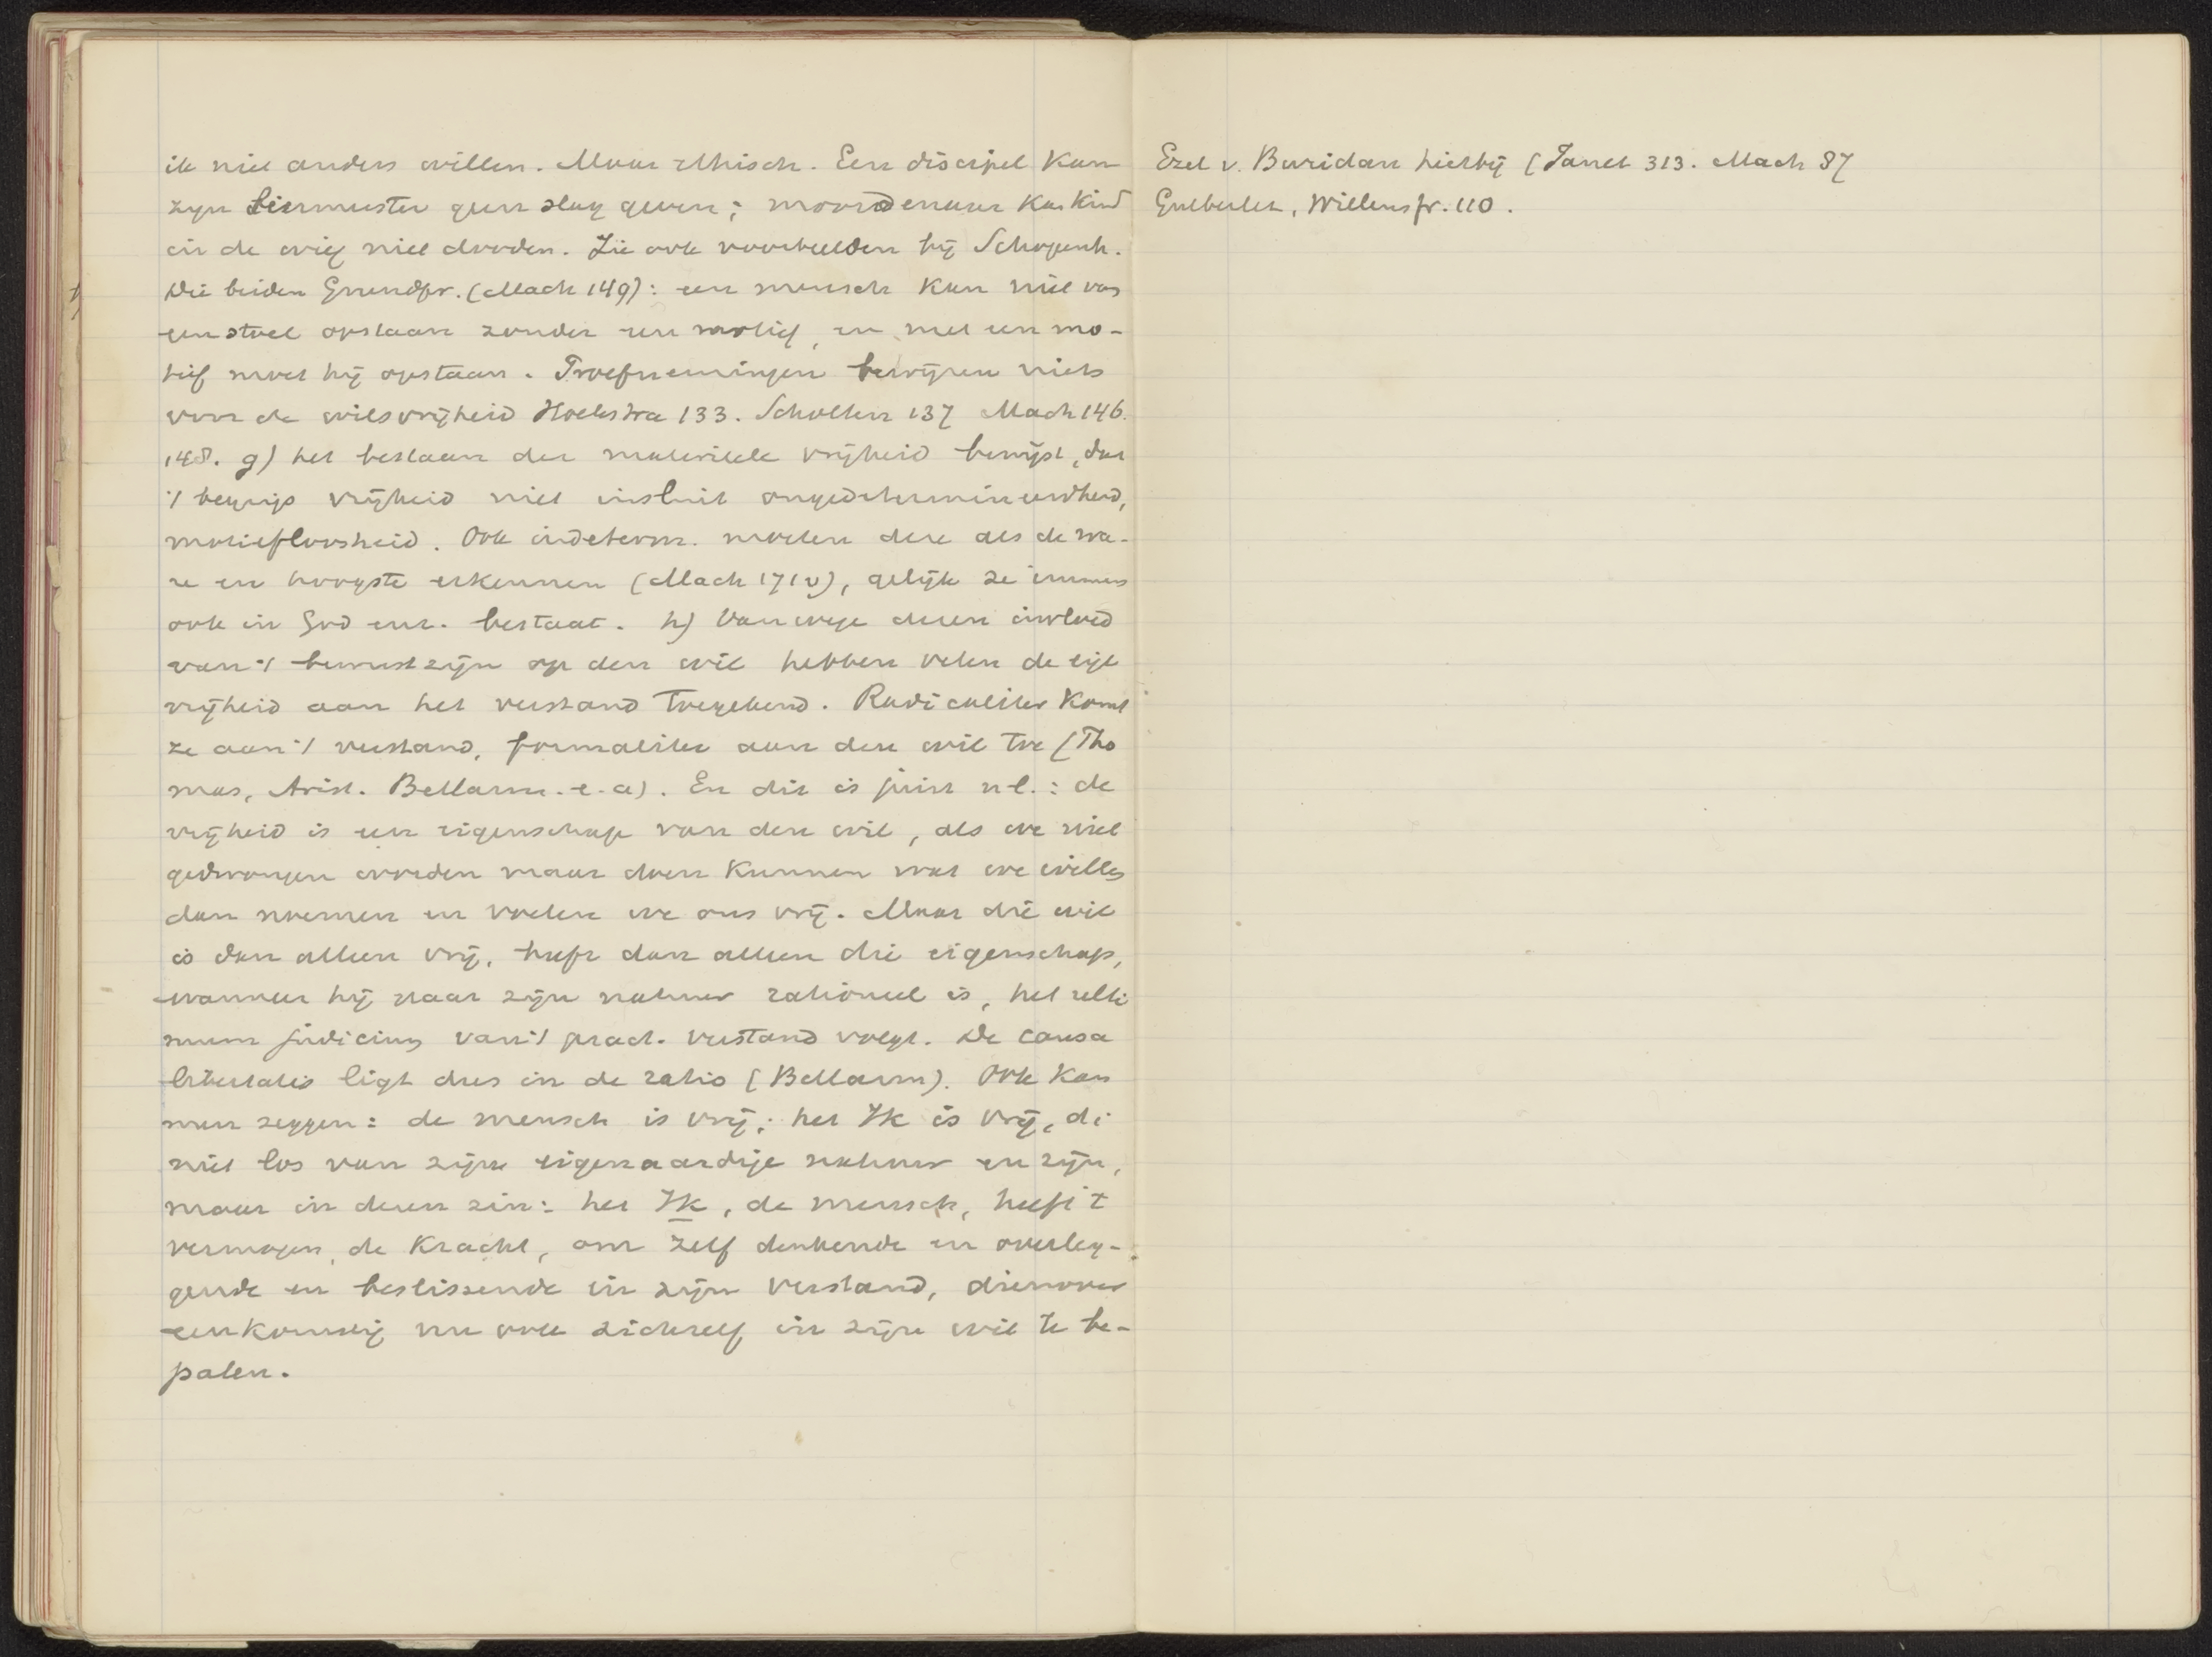 ik niet anders willen. Maar ethisch. Een discipel kan
zijn leermeester geen slag geven; moordenaar kan kind
in de wieg niet dooden. Zie ook voorbeelden bij Schopenh.
Die beiden Grundpr. (Mach 149): een mensch kan niet van
een stoel opstaan zonder een motief, en met een mo-
tief moet hij opstaan. Proefnemingen bewijzen niets
voor de wilsvrijheid Hoekstra 133. Scholten 137 Mach 146.
148. g) het bestaan der materieele vrijheid bewijst, dat
't begrip vrijheid niet insluit ongedetermineerdheid,
motiefloosheid. Ook indeterm. moeten deze als de wa-
re en hoogste erkennen (Mach 171 v), gelijk ze immers
ook in God enz. bestaat. h) Vanwege dezen invloed
van 't bewustzijn op den wil hebben velen de eigl
vrijheid aan het verstand toegekend. Radicaliter komt
ze aan 't verstand, formaliter aan den wil toe (Tho
mas, Arist. Bellarm. e. a). En dit is juist nl.: de
vrijheid is een eigenschap van den wil, als we niet
gedwongen worden maar doen kunnen wat we willen
dan noemen en voelen we ons vrij. Maar die wil
is dan alleen vrij, heeft dan alleen die eigenschap,
wanneer hij naar zijn natuur rationeel is, het ulti
mum judicium van 't pract. verstand volgt. De causa
libertatis ligt dus in de ratio (Bellarm). Ook kan
men zeggen: de mensch is vrij; het Ik is vrij, di
niet los van zijne eigenaardige natuur en zijn,
maar in dezen zin: het Ik, de mensch, heeft t
vermogen, de kracht, om zelf denkende en overleg-
gende en beslissende in zijn verstand, dienover
eenkomstig nu ook zichzelf in zijn wil te be-
palen.
Ezel v. Buridan hierbij (Janet 313. Mach 87
Gutberlet, Willensfr. 110.